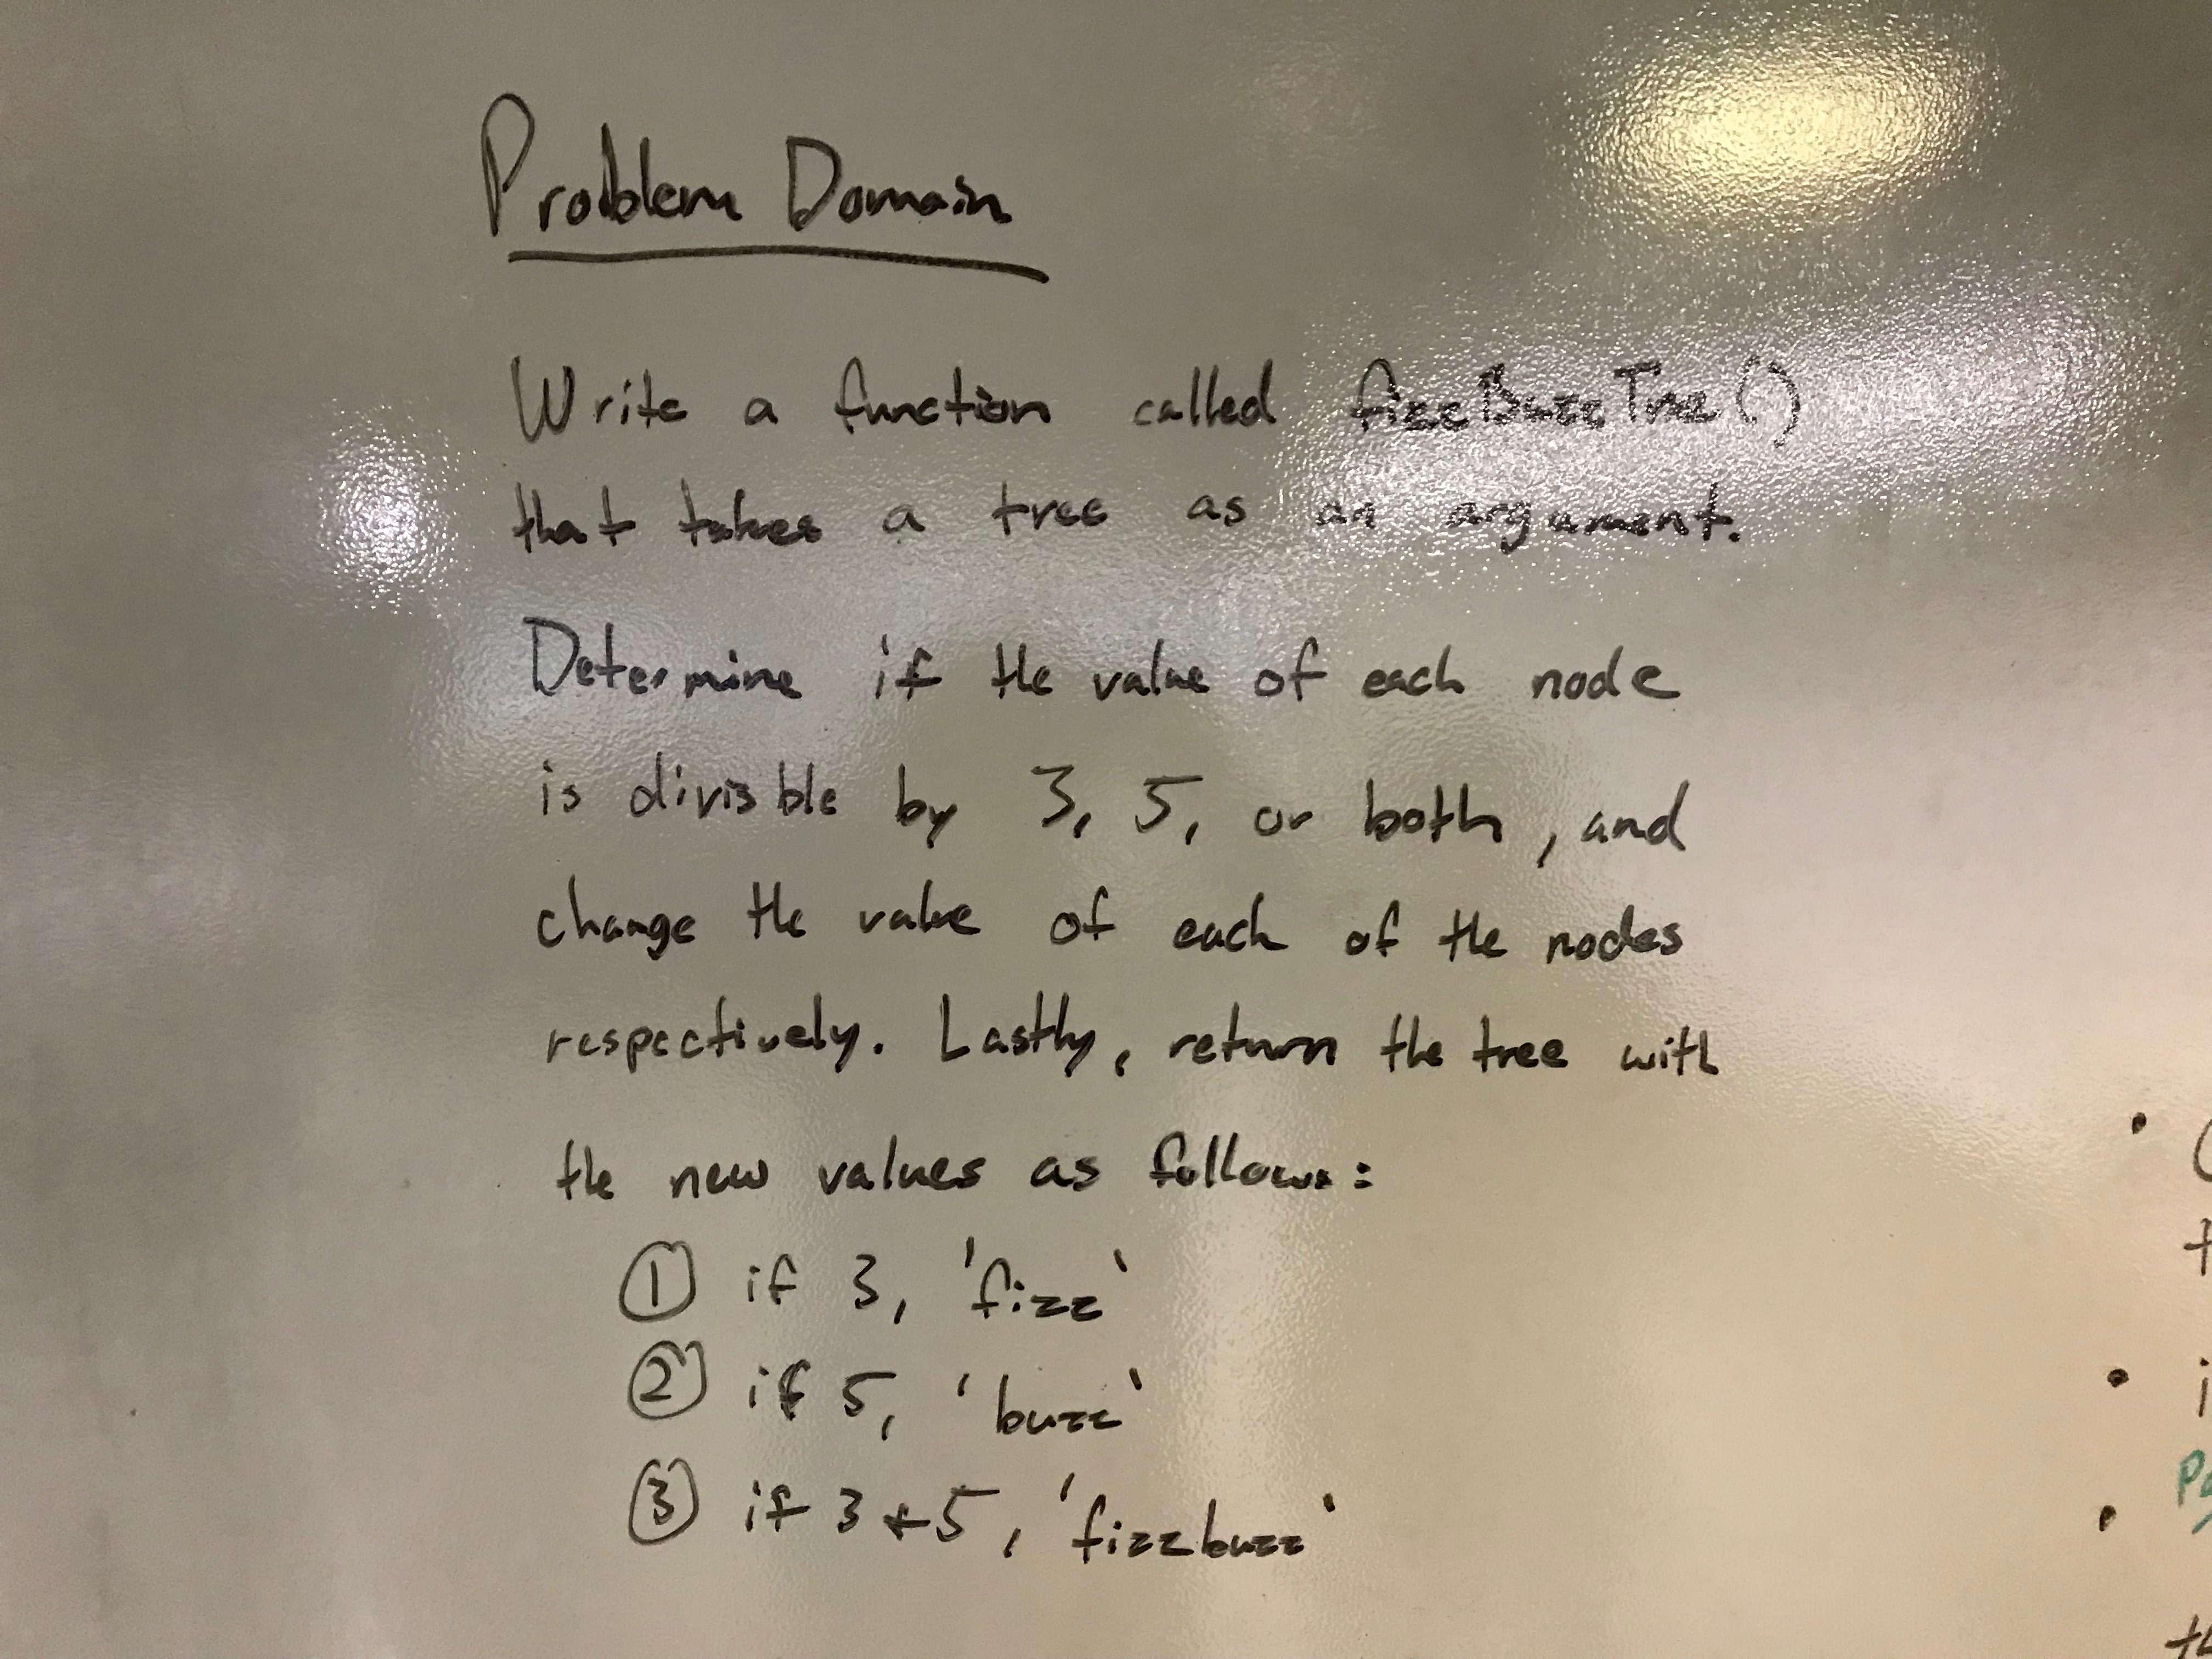 Problem Domain
Write a function called fizzBuzzTree()
that takes a tree as an argument.
Determine if the value of each node
is divisble by 3, 5, or both, and
change the value of each of the nodes
respectively. Lastly, return the tree with
the new values as follows:
① if 3, 'fizz'
② if 5, 'buzz'
③ if 3 + 5, 'fizzbuzz'